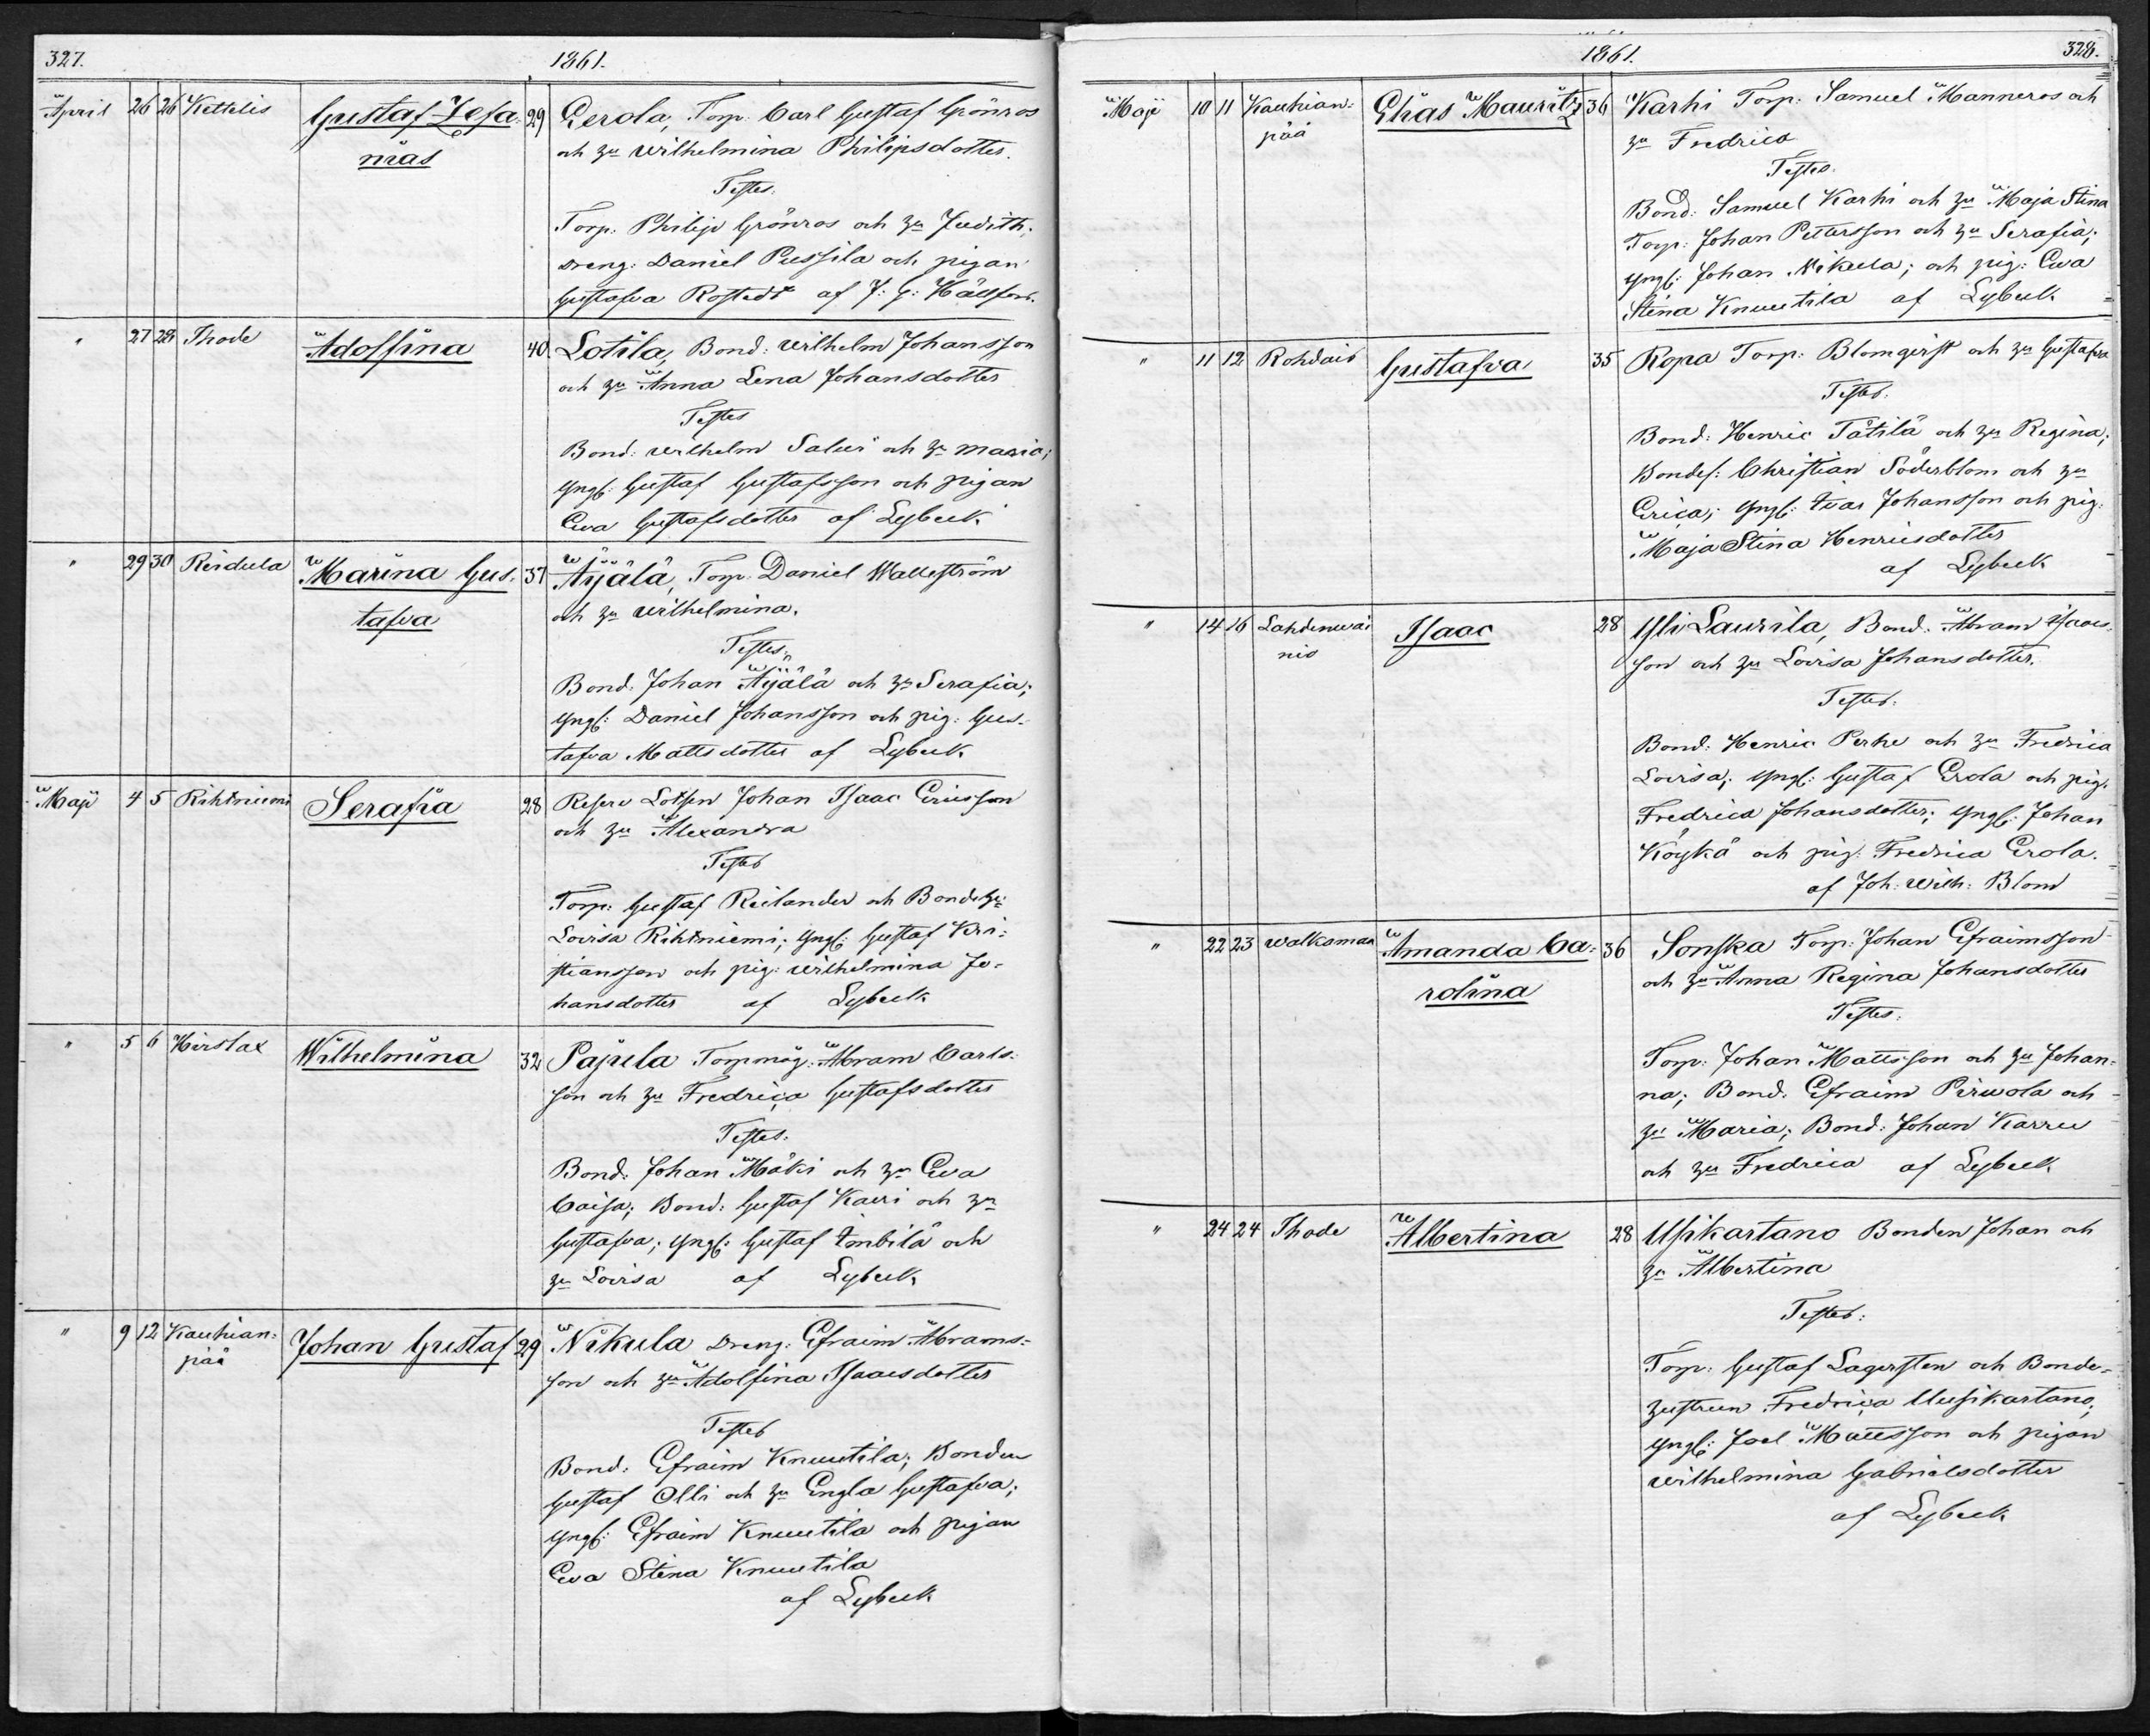 327.
1861.
April 26 26 Kettelis Gustaf Zefa- 29 Gerola, Torp. Carl Gustaf Grönros
nias och hu Wilhelmina Philipsdotter.
Testes:
Torp: Philip Grönros och hu Judith;
Dreng: Daniel Pussila och pigan
Gustafva Rostedt af J: G: Hällfors.
" 27 28 Thode Adolfina 40 Lotila, Bond: Wilhelm Johansson
och hu Anna Lena Johansdotter
Testes
Bond: Wilhelm Salus och hu Maria;
Yngl: Gustaf Gustafsson och pigan
Eva Gustafsdotter af Lybeck
" 29 30 Reidula Marina Gus- 37 Äyälä, Torp. Daniel Wallström
tafva och hu Wilhelmina.
Testes:
Bond. Johan Äyälä och hu Serafia;
Yngl: Daniel Johansson och pig: Gus-
tafva Mattsdotter af Lybeck
Maji 4 5 Rihtniemi Serafia 28 Reserv Lotsen Johan Isaac Ericsson
och hu Alexandra
Testes
Torp: Gustaf Reilander och Bondehu:
Lovisa Rihtniemi; Yngl: Gustaf Kri-
stiansson och pig: Wilhelmina Jo-
hansdotter af Lybeck
" 5 6 Hirslax Wilhelmina 32 Pajula Torpmåg: Abram Carls-
son och hu Fredrica Gustafsdotter
Testes:
Bond: Johan Mäki och hu Eva
Caisa; Bond: Gustaf Kauri och hu
Gustafva; Yngl: Gustaf Imbilä och
hu Lovisa af Lybeck
" 9 12 Kauhian- Johan Gustaf 29 Nikula Dreng: Efraim Abrams-
pää son och hu Adolfina Isaacsdotter
Testes
Bond: Efraim Knuutila; Bonden
Gustaf Olli och hu Engla Gustafva;
Yngl: Efraim Knuutila och pigan
Eva Stina Knuutila
af Lybeck
1861.
328.
Maji 10 11 Kauhian- Elias Mauritz 36 Karhi Torp: Samuel Manneros och
pää hu Fredrica
Testes.
Bond: Samuel Karhi och hu Maja Stina
Torp: Johan Pettersson och hu Serafia;
Yngl: Johan Nikula; och pig: Eva
Stina Knuutila af Lybeck
" 11 12 Rohdais Gustafva 35 Ropa Torp: Blomqvist och hu Gustafva
Testes.
Bond: Henric Tätilä och hu Regina;
Bondes: Christian Söderblom och hu
Erica; Yngl: Ivar Johansson och pig:
Maja Stina Henricsdotter
af Lybeck
" 14 16 Lahdenwai- Isaac 28 Yli Laurila, Bond: Abram Isaacs-
nio son och hu Lovisa Johansdotter.
Testes:
Bond: Henric Perhe och hu Fredrica
Lovisa; Yngl: Gustaf Erola och pig.
Fredrica Johansdotter; Yngl: Johan
Köykä och pig: Fredrica Erola.
af Joh: Wilh: Blom
" 22 23 Walksmaa Amanda Ca- 36 Sonska Torp: Johan Efraimsson
rolina och hu Anna Regina Johansdotter
Testes:
Torp: Johan Mattsson och hu Johan-
na; Bond: Efraim Pirwola och
hu Maria; Bond: Johan Karru
och hu Fredrica af Lybeck
" 24 24 Thode Albertina 28 Usikartano Bonden Johan och
hu Albertina
Testes:
Torp: Gustaf Lagersten och Bonde-
hustrun Fredrica Uusikartano;
Yngl: Joel Mattsson och pigan
Wilhelmina Gabrielsdotter
af Lybeck